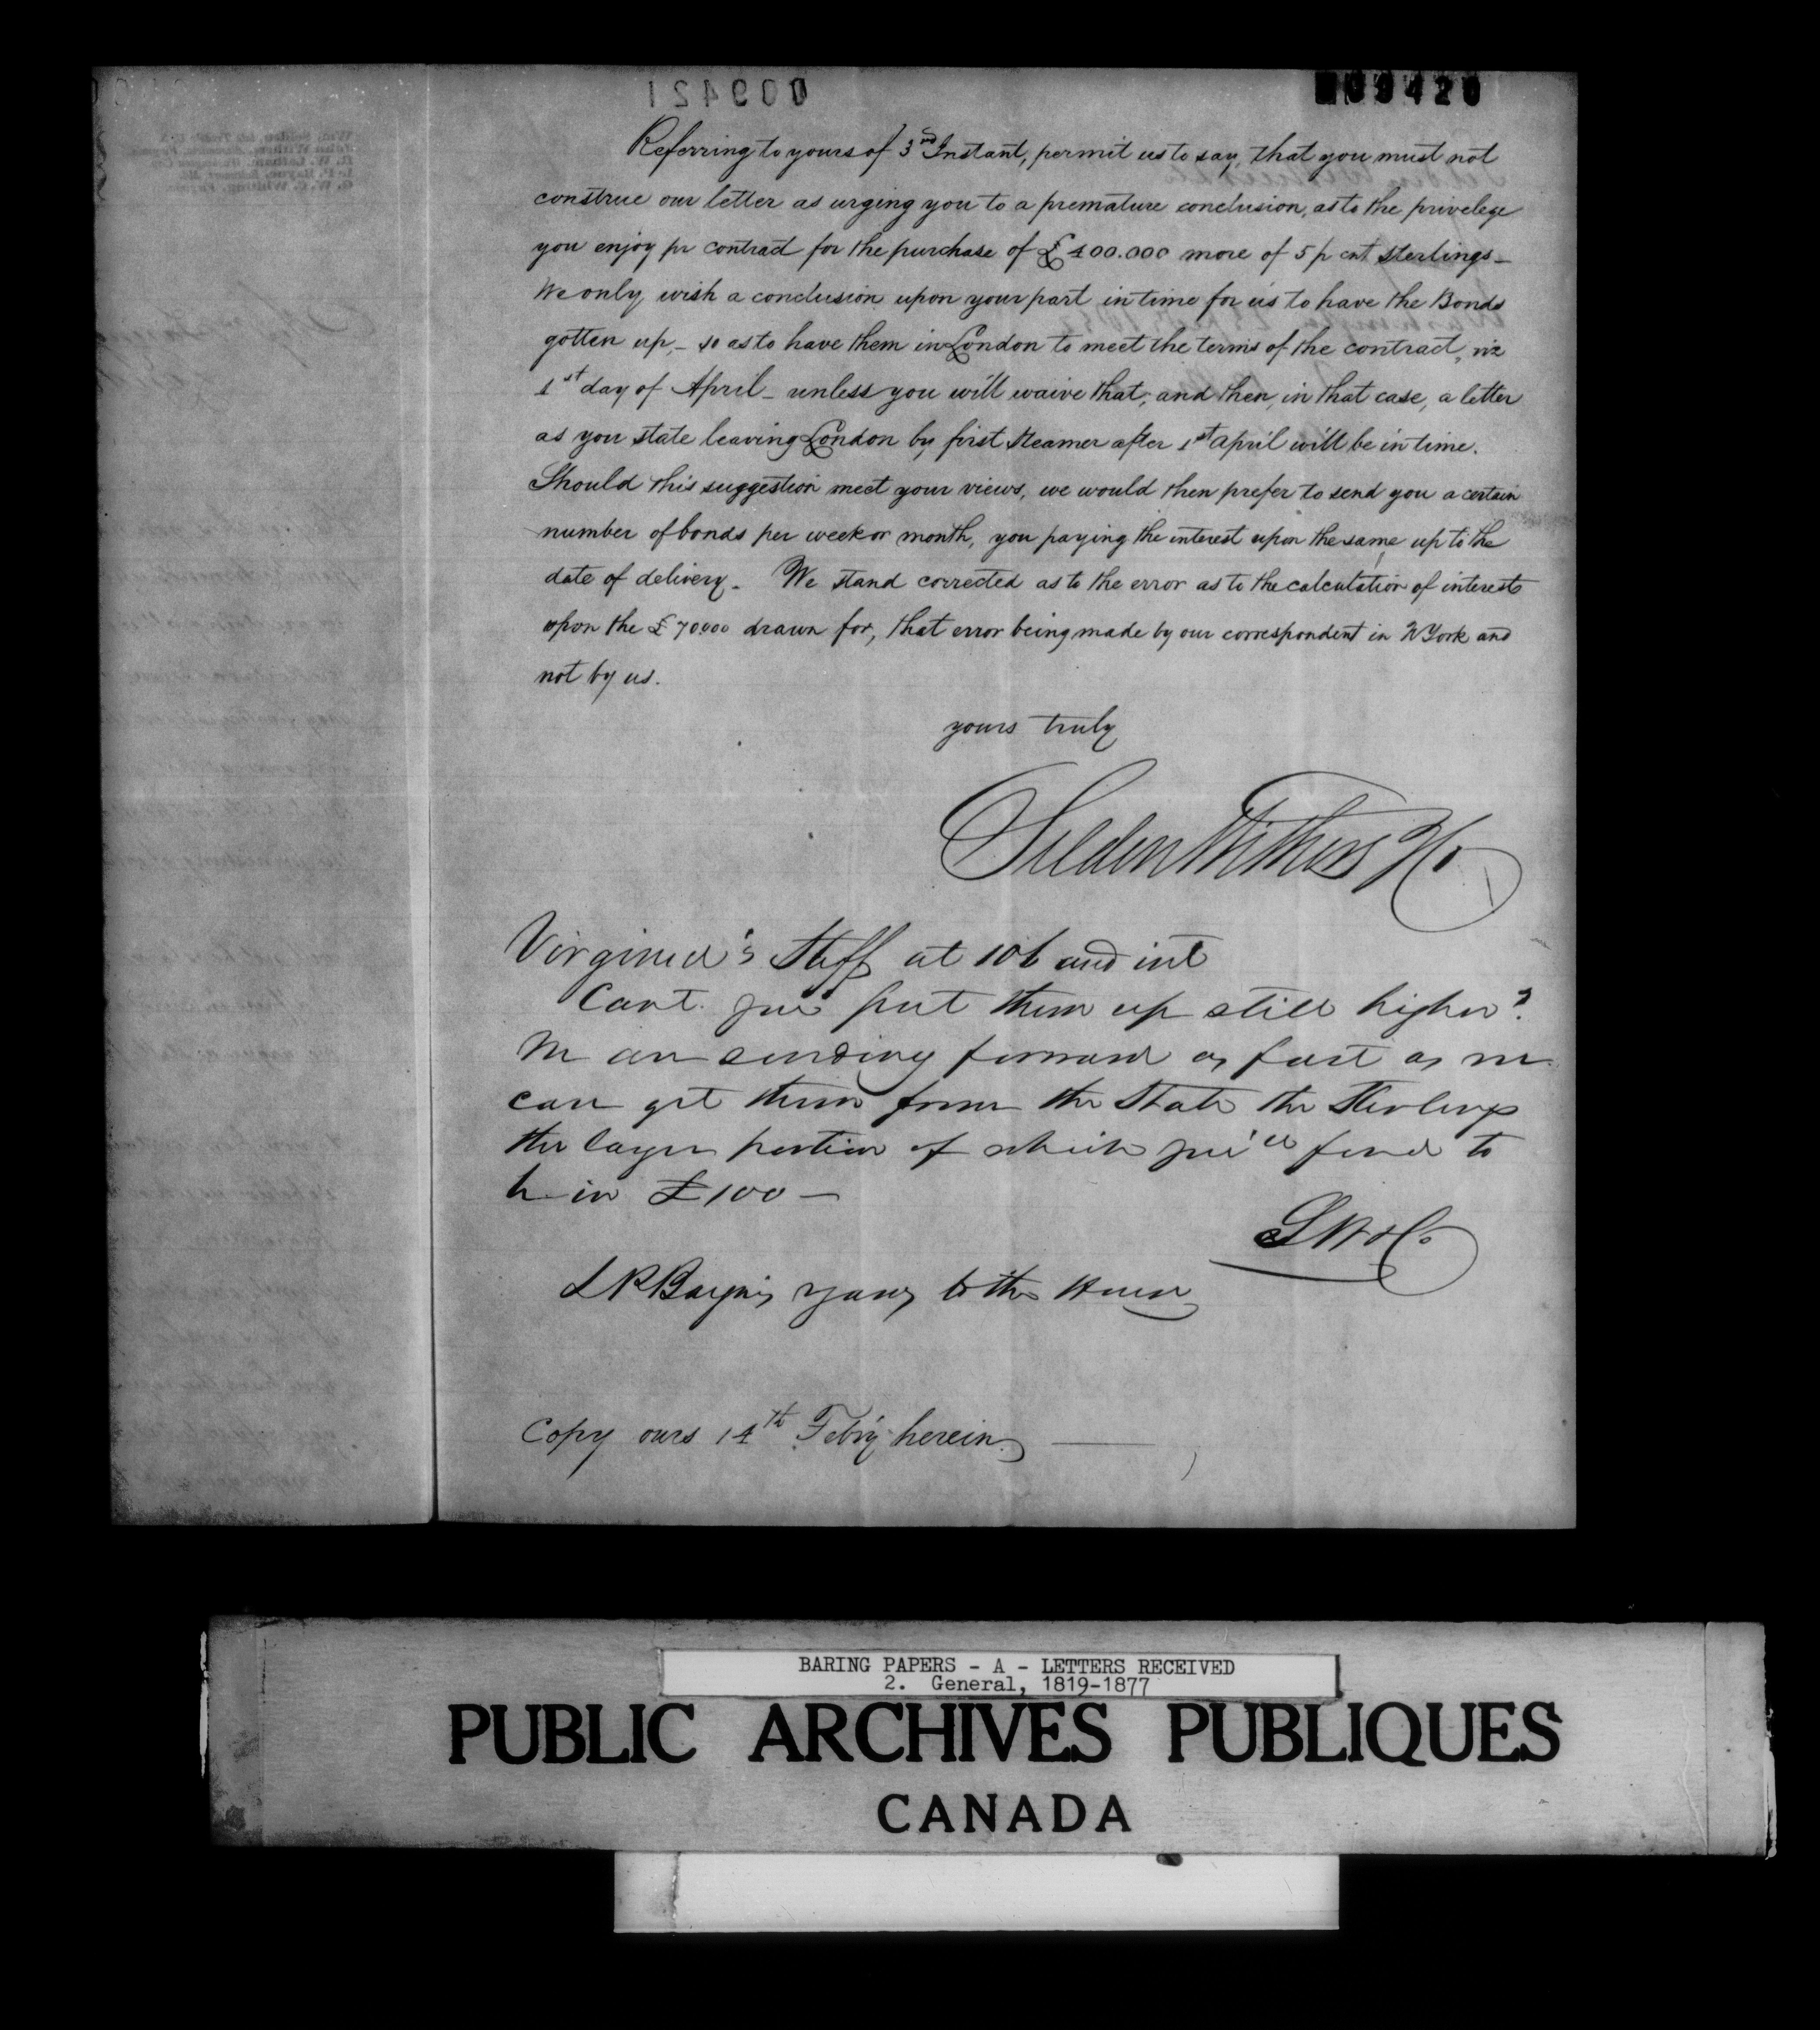 009420
Referring to yours of 3rd Instant, permit us to say, that you must not
construe our letter as urging you to a premature conclusion, as to the privelege
you enjoy pr contract for the purchase of £400.000 more of 5 p cnt sterlings_
We only wish a conclusion upon your part in time for us to have the Bonds
gotten up,_ so as to have them in London to meet the terms of the contract, viz
1st day of April_ unless you will waive that; and then, in that case, a letter
as you state leaving London by first steamer after 1st april will be in time.
Should this suggestion meet your views, we would then prefer to send you a certain
number of bonds per week or month, you paying the interest upon the same up to the
date of delivery_ We stand corrected as to the error as to the calculation of interest
upon the £70000 drawn for, that error being made by our correspondent in NYork and
not by us.
yours truly
Selden Withers & Co
Virginia's Stiff at 106 and int
Cant you put them up still higher?
We are sending forward as fast as we
can get them from the State the Sterlings
the larger portion of which you'll find to
be in £100—
SW&Co
Copy ours 14th Feb'y herein
BARING PAPERS - A - LETTERS RECEIVED
2. General, 1819-1877
PUBLIC ARCHIVES PUBLIQUES
CANADA